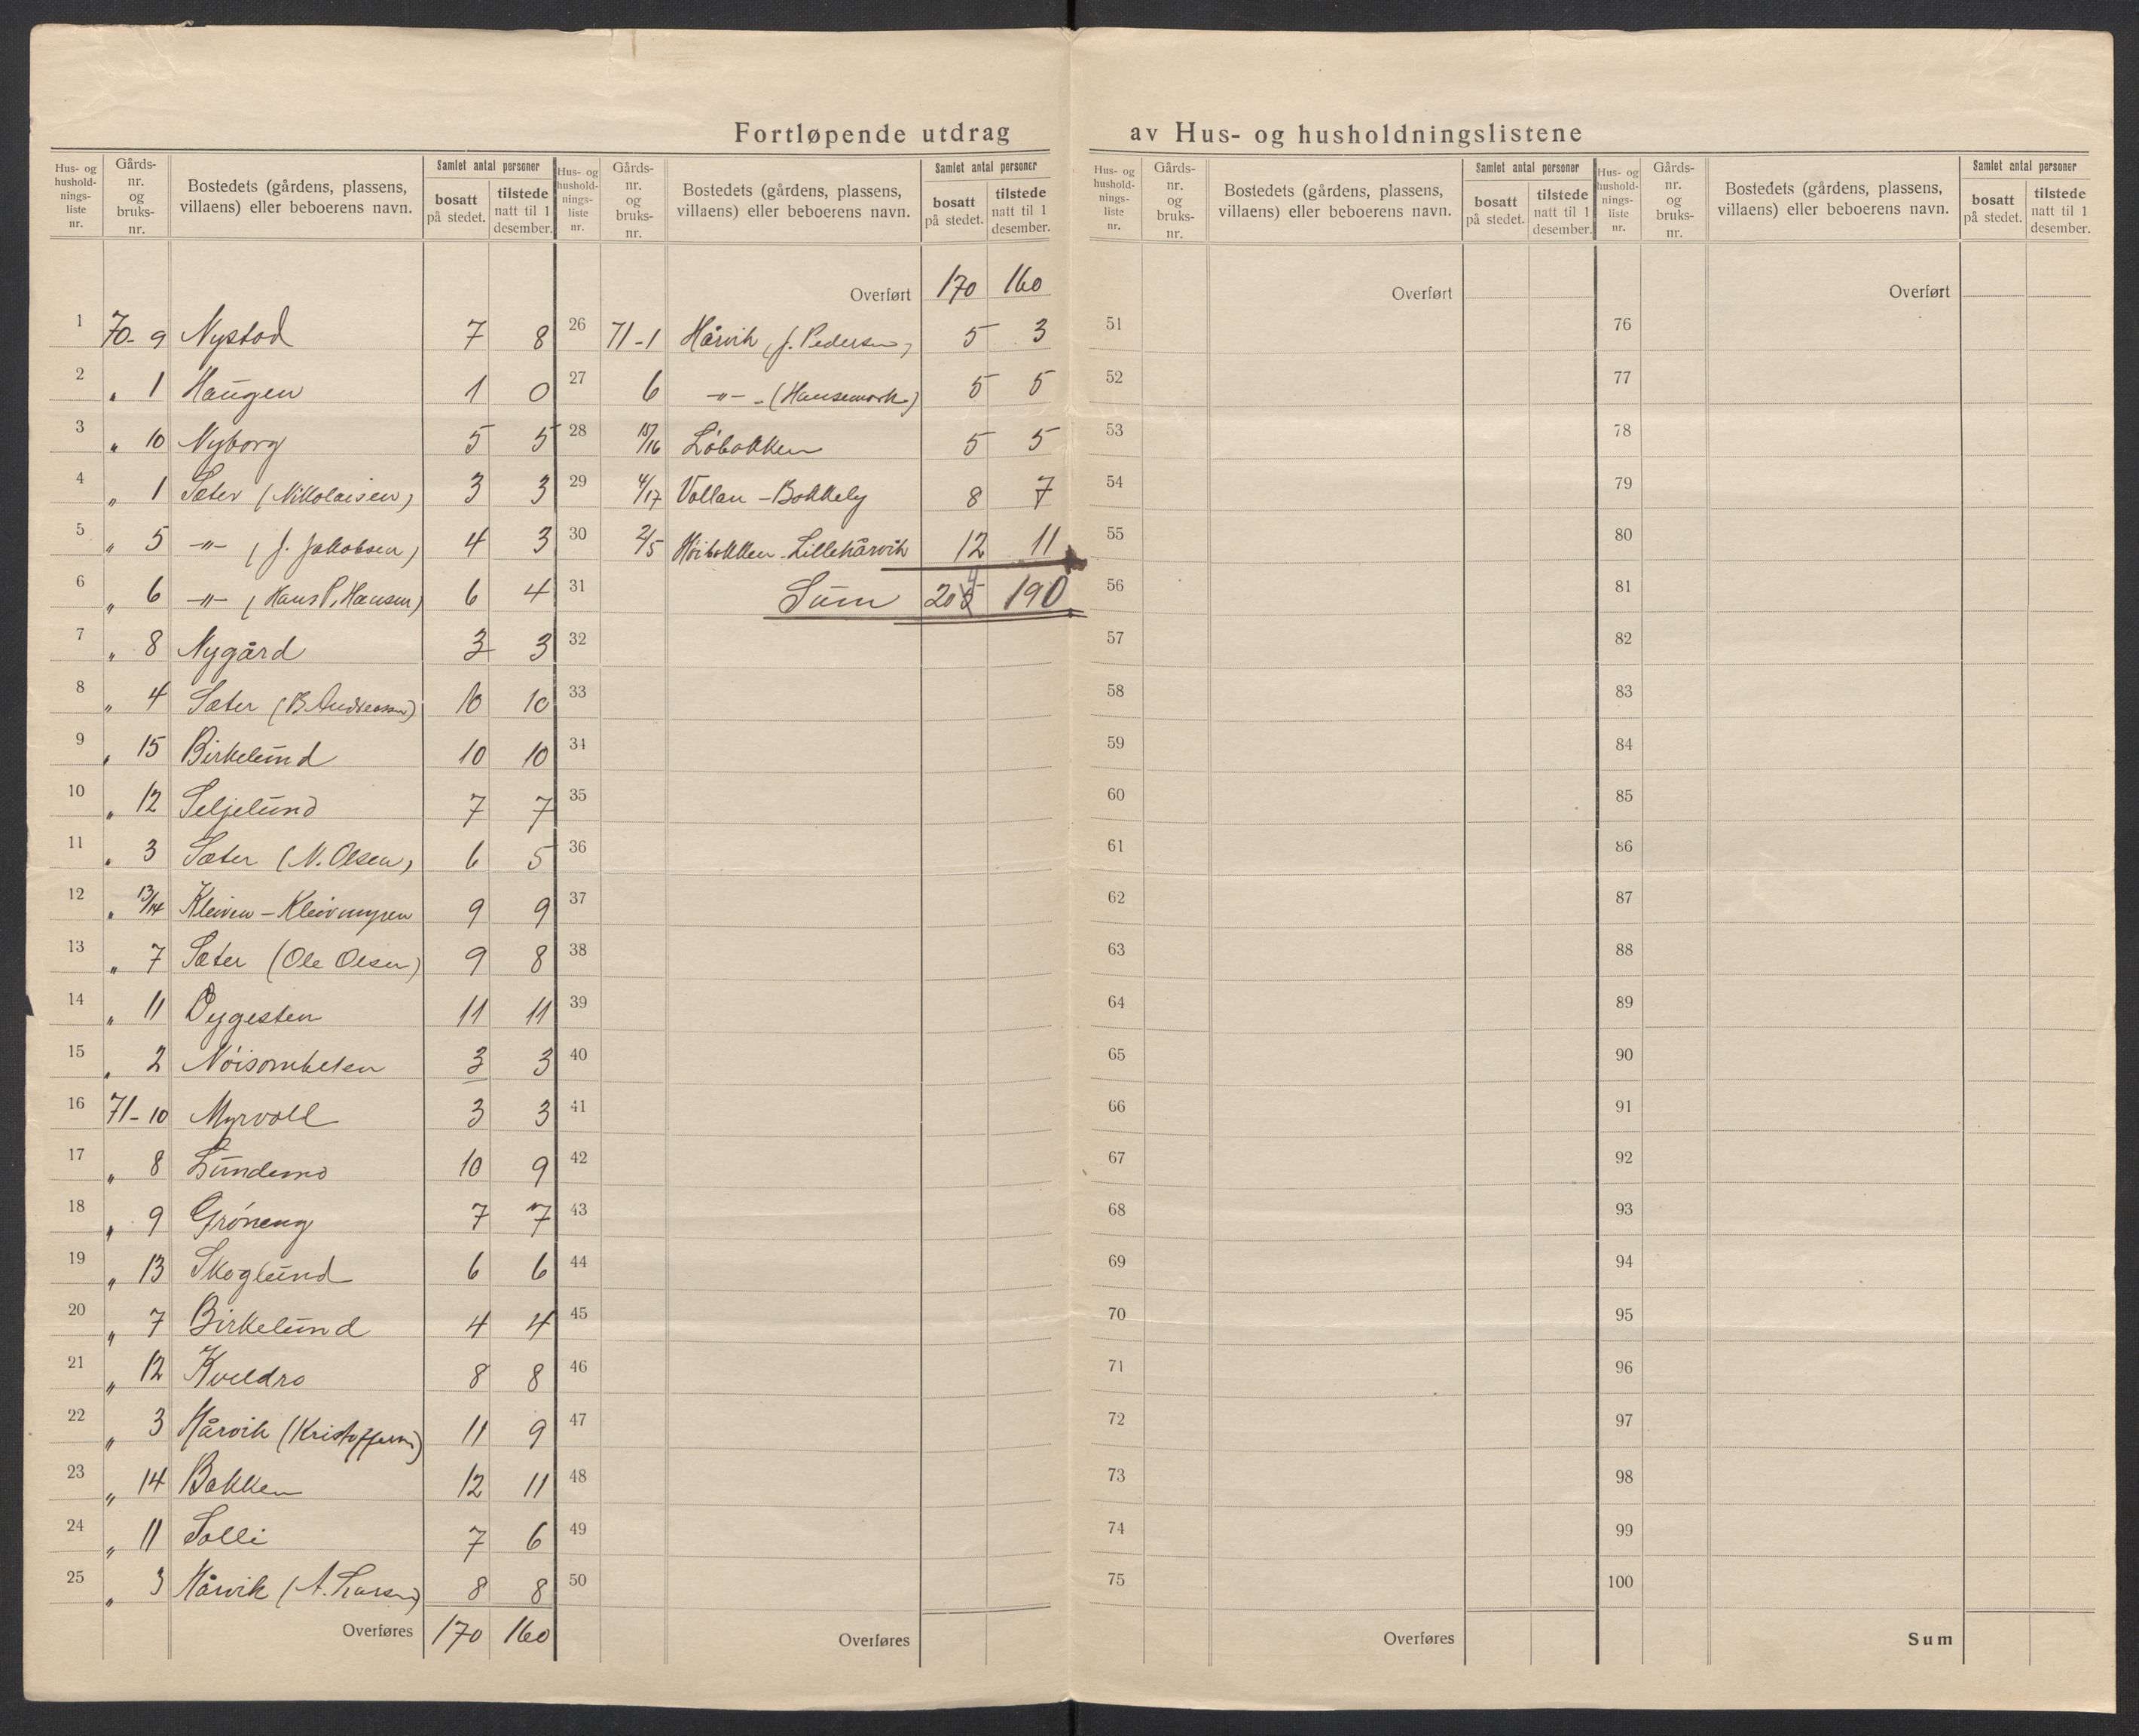 Fortløpende utdrag av Hus- og husholdningslistene
Hus- og hushold- nings- liste nr. Gårds- nr. og bruks- nr. Bostedets (gårdens, plassens, villaens) eller beboerens navn. Samlet antal personer bosatt på stedet. tilstede natt til 1 desember.
1 70- 9 Nystad 7 8
2 „ 1 Haugen 1 0
3 „ 10 Nyborg 5 5
4 „ 1 Sæter (Nikolaisen) 3 3
5 „ 5 -„- (J. Jakobsen) 4 3
6 „ 6 -„- (Hans P. Hansen) 6 4
7 „ 8 Nygård 3 3
8 „ 4 Sæter (B. Andreassen) 10 10
9 „ 15 Birkelund 10 10
10 „ 12 Seljelund 7 7
11 „ 3 Sæter (N. Olsen) 6 5
12 „ 13/14 Kleiven - Kleivmyren 9 9
13 „ 7 Sæter (Ole Olsen) 9 8
14 „ 11 Dygesten 11 11
15 „ 2 Nöisomheten 3 3
16 71- 10 Myrvoll 3 3
17 „ 8 Lundemo 10 9
18 „ 9 Gröneng 7 7
19 „ 13 Skoglund 6 6
20 „ 7 Birkelund 4 4
21 „ 12 Kveldro 8 8
22 „ 3 Hårvik (Kristoffersen) 11 9
23 „ 14 Bakken 12 11
24 „ 11 Solli 7 6
25 „ 3 Hårvik (A. Larsen) 8 8
Overføres 170 160
Hus- og hushold- nings- liste nr. Gårds- nr. og bruks- nr. Bostedets (gårdens, plassens, villaens) eller beboerens navn. Samlet antal personer bosatt på stedet. tilstede natt til 1 desember.
Overført 170 160
26 71-1 Hårvik (J. Pedersen) 5 3
27 6 -„- (Hansemark) 5 5
28 15/16 Löbakken 5 5
29 4/17 Vollan - Bakkely 8 7
30 2/5 Höibakken - Lillehårvik 12 11
31 Sum 205 190
32
33
34
35
36
37
38
39
40
41
42
43
44
45
46
47
48
49
50
Overføres
Hus- og hushold- nings- liste nr. Gårds- nr. og bruks- nr. Bostedets (gårdens, plassens, villaens) eller beboerens navn. Samlet antal personer bosatt på stedet. tilstede natt til 1 desember.
Overført
51
52
53
54
55
56
57
58
59
60
61
62
63
64
65
66
67
68
69
70
71
72
73
74
75
Overføres
Hus- og hushold- nings- liste nr. Gårds- nr. og bruks- nr. Bostedets (gårdens, plassens, villaens) eller beboerens navn. Samlet antal personer bosatt på stedet. tilstede natt til 1 desember.
Overført
76
77
78
79
80
81
82
83
84
85
86
87
88
89
90
91
92
93
94
95
96
97
98
99
100
Sum